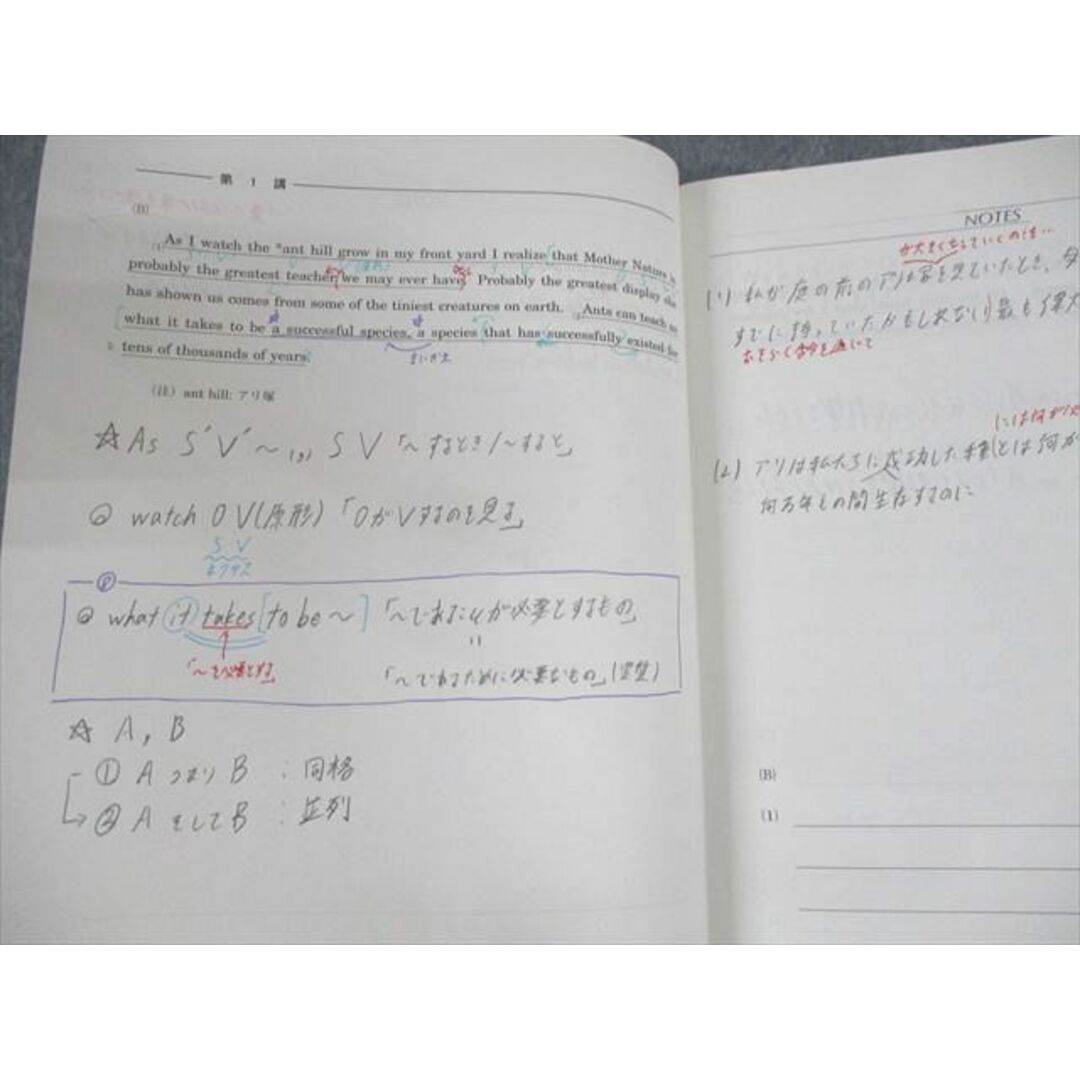 第 1 講
(B)
(1)As I watch the *ant hill grow in my front yard I realize that Mother Nature is
probably the greatest teacher we may ever have. Probably the greatest display she
has shown us comes from some of the tiniest creatures on earth. (2)Ants can teach us
what it takes to be a successful species, a species that has successfully existed for
tens of thousands of years.
言いかえ
(注) ant hill: アリ塚
☆ As S' V' ~ (,) S V 「~するとき/~すると」
◎ watch O V(原形) 「OがVするのを見る」
S V
ネクサス
Ⓟ
◎ what it takes [to be ~] 「~であることが必要とするもの」
「~を必要とする」
=
「~であるために必要なもの」(直訳)
☆ A, B
① A つまり B : 同格
② A そして B : 並列
NOTES
が大きくなっていくのを…
(1) 私が庭の前のアリ塚を見ていたとき、
すでに持っていたかもしれない最も偉大
おそらく
には何が
(2) アリは私たちに成功した種とは何か
何万年もの間生存するのに
(B)
(1)